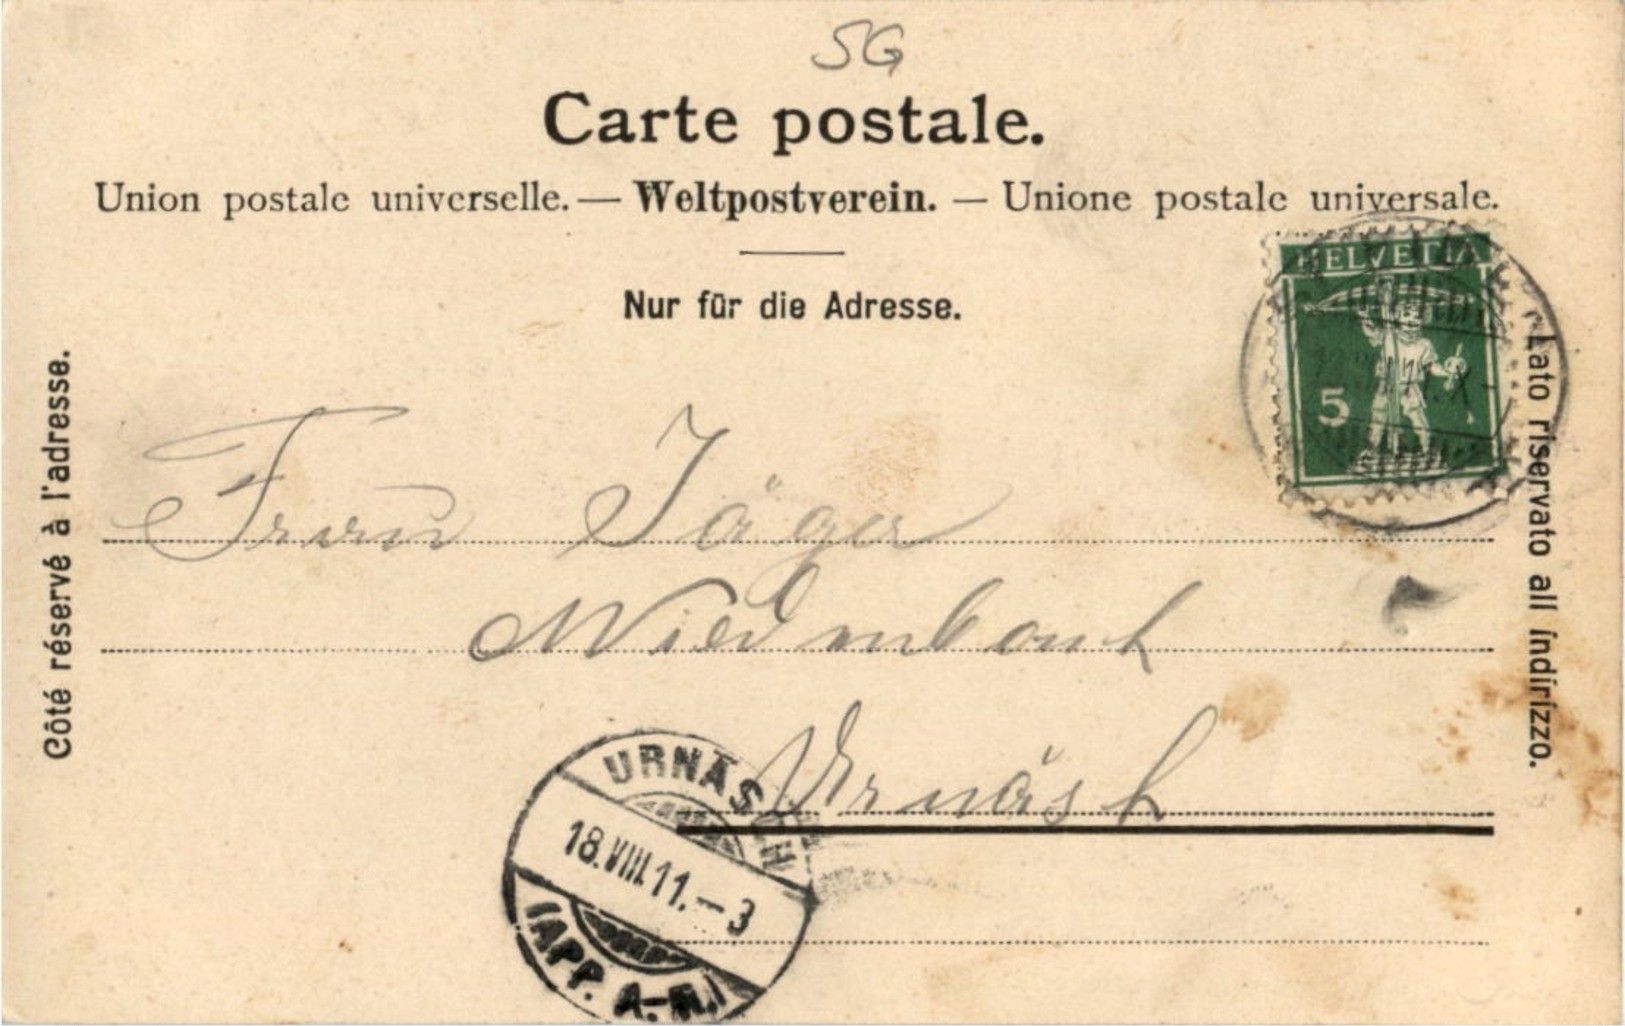 SG
Carte postale.
Union postale universelle. — Weltpostverein. — Unione postale universale.
Nur für die Adresse.
HELVETIA
5
Côté réservé à l'adresse.
Lato riservato all indirizzo.
Frau Jäger
Urnäsch
URNÄSCH
18.VIII.11.-3
(APP. A.-R.)